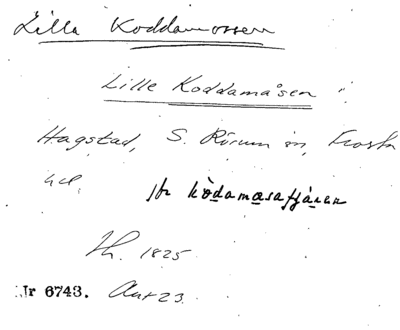 Lilla Koddamossen
Lille Koddamåsen
Hagstad, S. Rörum sn, Frosta
hd.
jfr kòdamasafjären
Th. 1825
Nr 6743. Ant 23